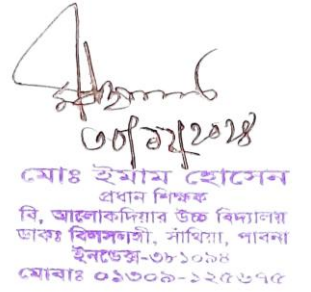 ৩০/০৯/২০২৪
মোঃ ইমাম হোসেন
প্রধান শিক্ষক
বি, আলোকদিয়ার উচ্চ বিদ্যালয়
ডাকঃ বিলসলঙ্গী, সাঁথিয়া, পাবনা
ইনডেক্স-৩৮১০৯৪
মোবাঃ ০১৩০৯-১২৫৬৭৫